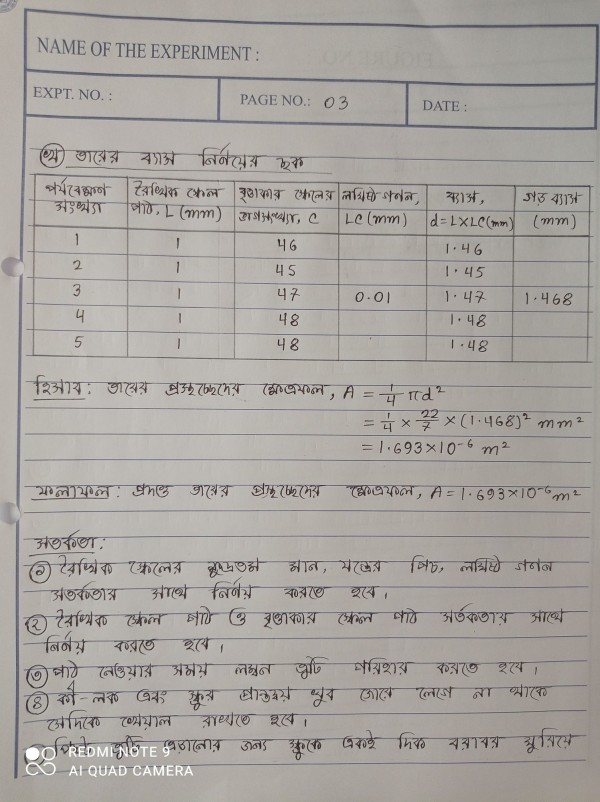 NAME OF THE EXPERIMENT :
EXPT. NO. :
PAGE NO.: 03
DATE :
(খ) তারের ব্যাস নির্ণয়ের ছক
পর্যবেক্ষণ সংখ্যা
রৈখিক স্কেল পাঠ, L (mm)
বৃত্তাকার স্কেলের ভাগসংখ্যা, C
লঘিষ্ঠ গণন, LC (mm)
ব্যাস, d = L×LC (mm)
গড় ব্যাস (mm)
1 1 46 1.46
2 1 45 1.45
3 1 47 0.01 1.47 1.468
4 1 48 1.48
5 1 48 1.48
হিসাব : তারের প্রস্থচ্ছেদের ক্ষেত্রফল, A = 1/4 πd²
= 1/4 × 22/7 × (1.468)² mm²
= 1.693×10⁻⁶ m²
ফলাফল : প্রদত্ত তারের প্রস্থচ্ছেদের ক্ষেত্রফল, A = 1.693×10⁻⁶ m²
সতর্কতা :
(১) রৈখিক স্কেলের ক্ষুদ্রতম মান, যন্ত্রের পিচ, লঘিষ্ঠ গণন
সতর্কতার সাথে নির্ণয় করতে হবে।
(২) রৈখিক স্কেল পাঠ ও বৃত্তাকার স্কেল পাঠ সর্তকতার সাথে
নির্ণয় করতে হবে।
(৩) পাঠ নেওয়ার সময় লম্বন ত্রুটি পরিহার করতে হবে।
(৪) কী-লক এবং স্ক্রুর প্রান্তদ্বয় খুব জোরে লেগে না থাকে
সেদিকে খেয়াল রাখতে হবে।
ত্রুটি এড়ানোর জন্য স্ক্রুকে একই দিক বরাবর ঘুরিয়ে
REDMI NOTE 9
AI QUAD CAMERA